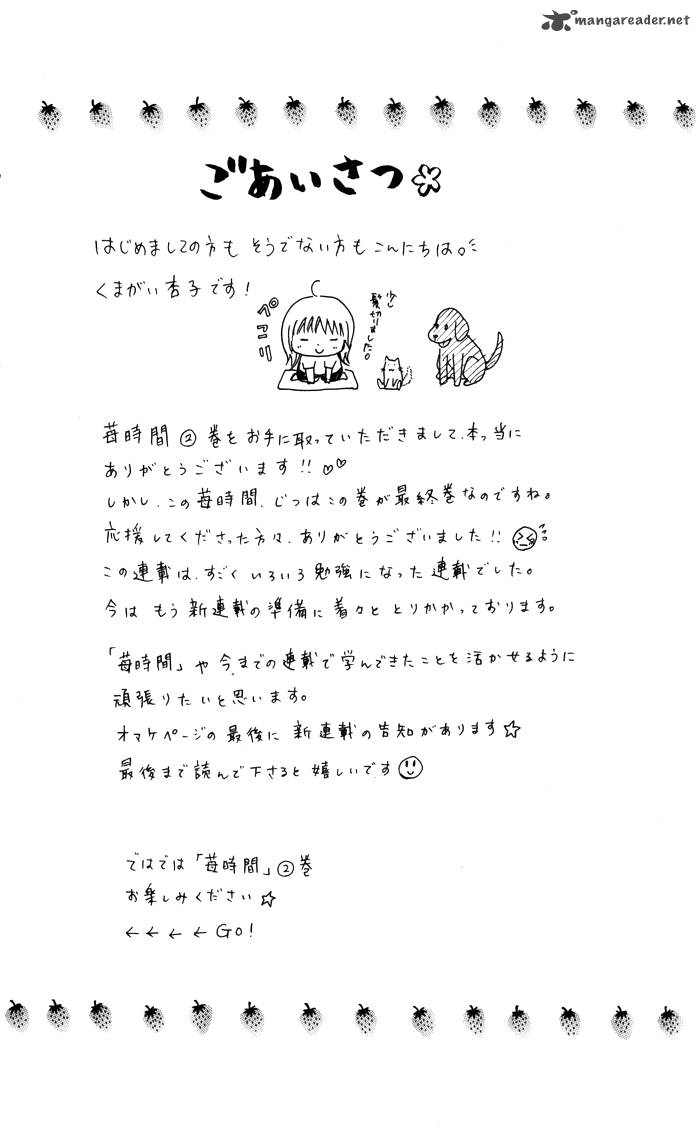 mangareader.net
ごあいさつ
はじめましての方も そうでない方も こんにちは。
くまがい杏子です!
ペコリ
少し
髪切りました。
苺時間②巻をお手に取っていただきまして、本っ当に
ありがとうございます!!♡♡
しかし、この苺時間、じつはこの巻が最終巻なのですね。
応援してくださった方々、ありがとうございました!!
この連載は、すごくいろいろ勉強になった連載でした。
今は もう新連載の準備に着々と とりかかっております。
「苺時間」や今までの連載で学んできたことを活かせるように
頑張りたいと思います。
オマケページの最後に 新連載の告知があります☆
最後まで読んで下さると嬉しいです
ではでは「苺時間」②巻
お楽しみください☆
←←←←GO!